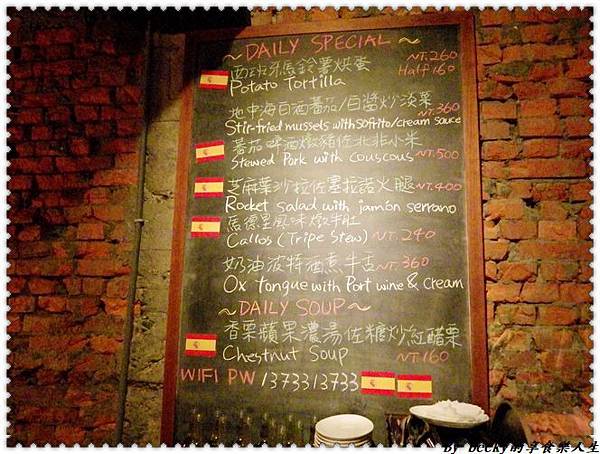 ~ DAILY SPECIAL ~
西班牙馬鈴薯烘蛋 NT.260
Potato Tortilla Half 160
地中海白酒蕃茄/白醬炒淡菜 NT.360
Stir-fried mussels with Sofrito/cream sauce
蕃茄啤酒燉豬佐北非小米
Stewed Pork with couscous NT.500
芝麻葉沙拉佐塞拉諾火腿 NT.400
Rocket salad with jamón serrano
馬德里風味燉牛肚
Callos (Tripe Stew) NT 240
奶油波特酒煮牛舌 NT 360
Ox tongue with Port wine & Cream
~ DAILY SOUP ~
香栗蘋果濃湯佐糖炒紅醋栗
Chestnut Soup NT 160
WIFI PW 1373313733
By becky的享食樂人生